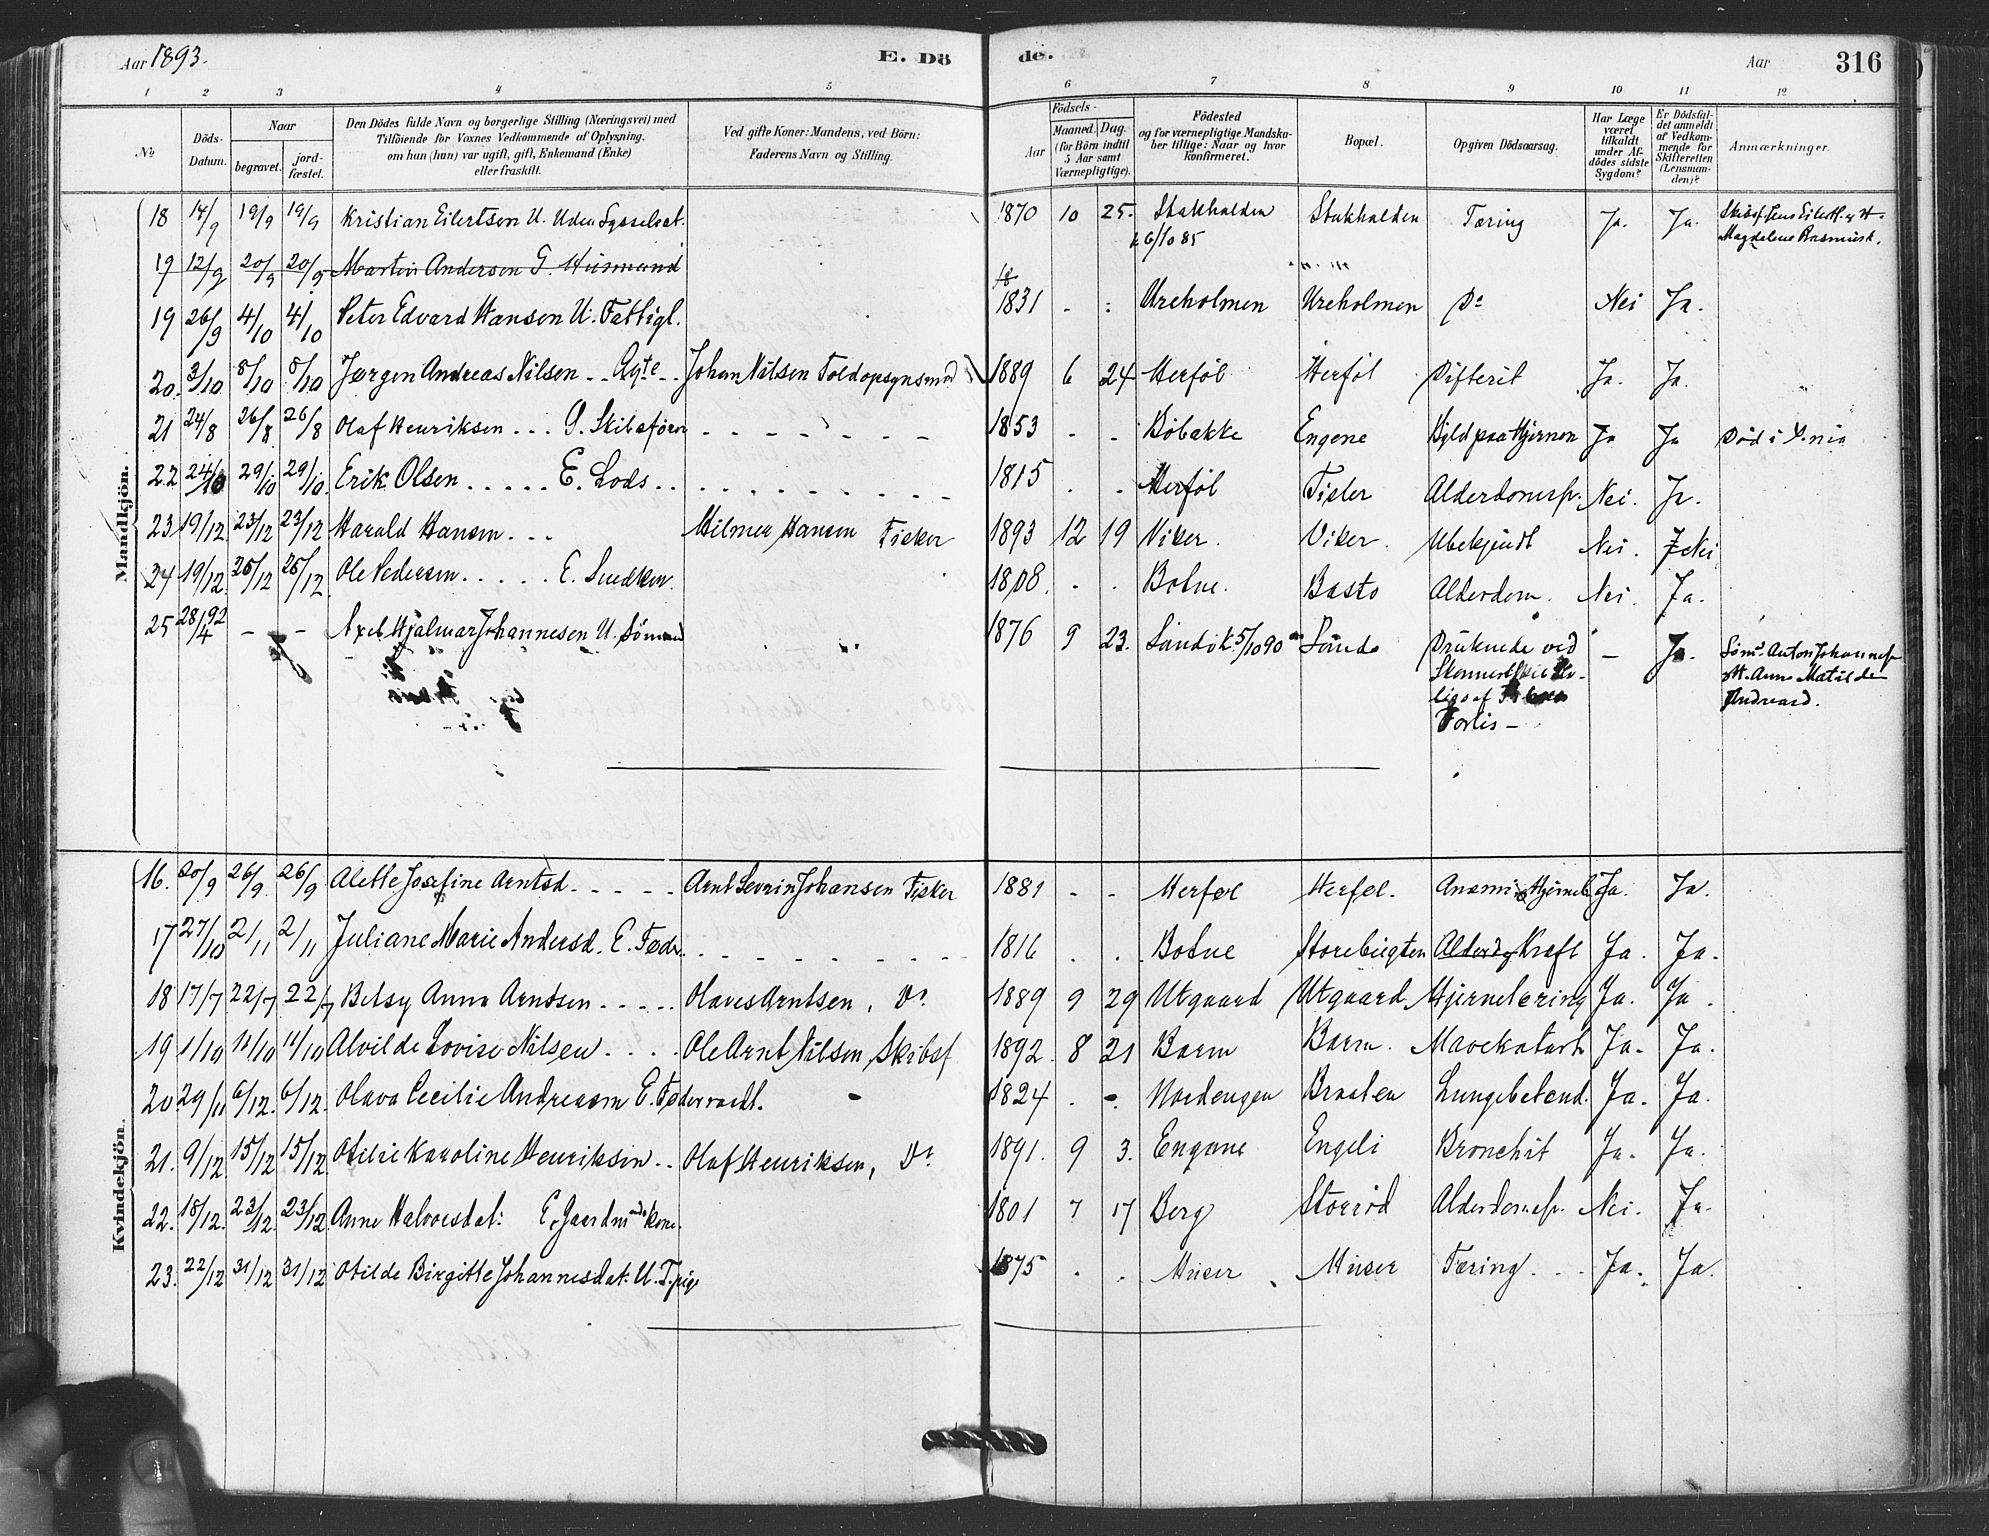 Aar 1893.
E. Dö
de.
Aar
316
1 2 3 4 5 6 7 8 9 10 11 12
No
Döds-Datum.
Naar
begravet.
jord-fæstet.
Den Dödes fulde Navn og borgerlige Stilling (Næringsvei) med
Tilföiende for Voxnes Vedkommende af Oplysning.
om han (hun) var ugift, gift, Enkemand (Enke)
eller fraskilt.
Ved gifte Koner: Mandens, ved Börn:
Faderens Navn og Stilling.
Födsels-
Aar
Maaned. Dag.
(for Börn indtil
5 Aar samt
Værnepligtige).
Födested
og for værnepligtige Mandska-
ber tillige: Naar og hvor
konfirmeret.
Bopæl.
Opgiven Dödsaarsag.
Har Læge
været
tilkaldt
under Af-
dödes sidste
Sygdom?
Er Dödsfal-
det anmeldt
af Vedkom-
mende for
Skifteretten
(Lensman-
den)?
Anmærkninger.
Mandkjön.
18 14/9 19/9 19/9 Kristian Eilertsen U. Uden Sysselsat. 1870 10 25. Stakhalden Stakhalden Tæring Ja. Ja.
k 6/10 85
Magdelene Rasmusd.
19 12/9 20/9 20/9 Martin Andersen G. Husmand
19 26/9 4/10 4/10 Peter Edvard Hansen U. Fattigl. 1831 - Ureholmen Ureholmen Do Nei Ja.
20. 3/10 8/10 8/10 Jørgen Andreas Nilsen - - Ægte - - Johan Nilsen Toldopsynsmd 1889 6 24 Herføl Herføl Difterit Ja. Ja.
21 24/8 26/8 26/8 Olaf Henriksen - - - G. Skibsfører 1853 - - Böbakke Engene Byld paa Hjernen Ja Ja Död i
22 24/10 29/10 29/10 Erik Olsen . . . . . E. Lods . . 1815 . . Herföl Tisler Alderdomssv. Nei. Ja.
23 19/12 23/12 23/12 Harald Hansen . . . Hilmer Hansen Fisker 1893 12 19 Viker. Viker. Ubekjendt Nei. Nei
24 19/12. 26/12 26/12. Ole Pedersen . . . . . E. Snedker. 1808. . . Botne. Basto Alderdom. Nei. Ja.
25 28/4 92 - - Axel Hjalmar Johannesen U. Sömand 1876 9 23. Sandö k. 5/10 90 Sandö Druknede ved - Ja. Söm. Anton Johannes
Anne Matilde
Andreasd.
Forlis -
Kvindekjön.
16. 20/9 26/9. 26/9 Alette Josefine Arntsd - - - - - Arnt Sevrin Johansen Fisker 1881 - - Herføl Herføl. Anæmi Ja. Ja.
17 27/10 2/11 2/11 Juliane Marie Andersd. E. Föder. 1816 . . Botne Storebugten Alderdom Kræft Ja. Ja.
18 17/7 22/7 22/7 Betsy Anna Arntsen - - - - - Olaves Arntsen, Do 1889 9 29 Utgaard Utgaard Hjernelering Ja. Ja.
19 1/10 11/10 11/10 Alvilde Lovise Nilsen - . . . Ole Arnt Nilsen Skibsf 1892. 8 21 Barm Barm. Mavekatarh Ja. Ja.
20 29/11 6/12. 6/12. Olava Cecilie Andreasen E. Föderraadt. 1824 . . Nordengen Braaten Lungebetænd. Ja. Ja.
21. 9/12 15/12 15/12 Otilie Karoline Henriksen - - Olaf Henriksen, Do 1891. 9 3. Engene Engeli Bronchit Ja. Ja.
22. 18/12. 23/12. 23/12. Anne Halvorsdat: E. Gaardmandskone. 1801 7 17 Berg Storröd Alderdomssv. Nei. Ja.
23. 22/12 31/12 31/12 Otilde Birgitte Johannesdat: U. T.pige 1875 . . Huser Huser Tæring . . . Ja. Ja.